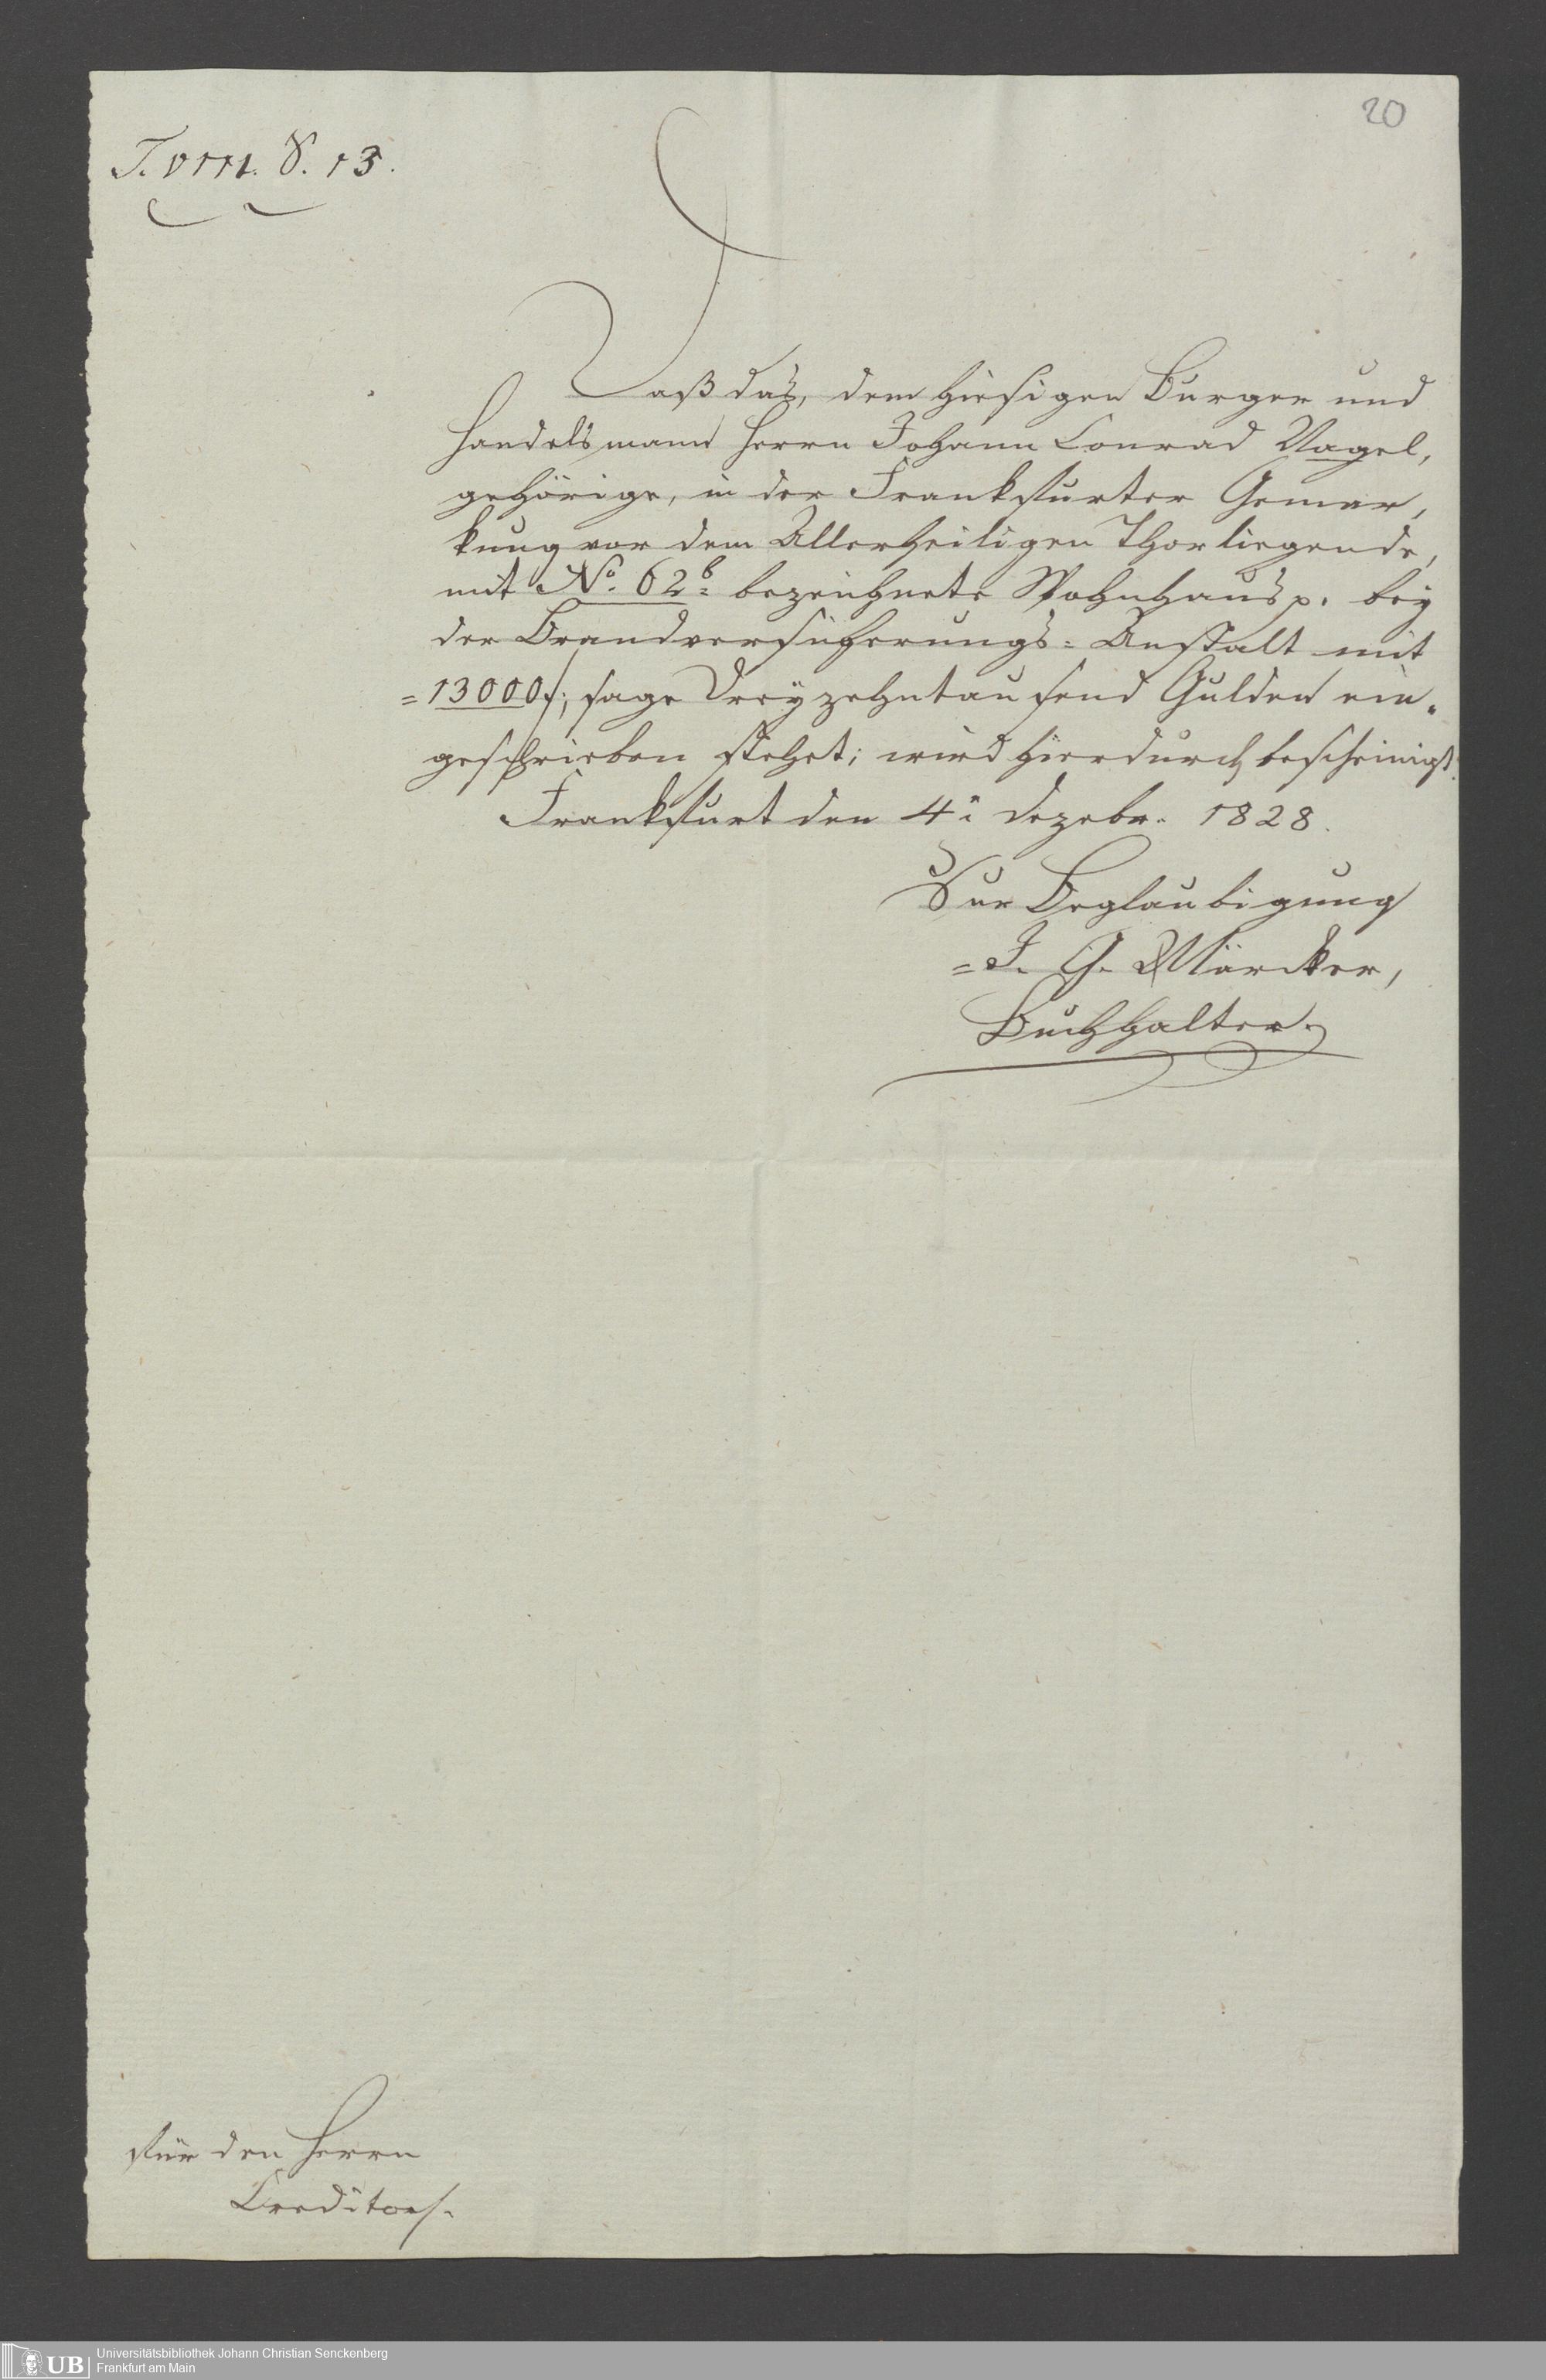 20
T. VIII. S. 13.
Daß das, dem hiesigen Burger und
Handelsmann Herrn Johann Conrad Nagel,
gehörige, in der Frankfurter Gemar,
kung vor dem Allerheiligen Thor liegende,
mit No. 62b bezeichnete Wohnhaus p. bey
der Brandversicherungs-Anstalt mit
=13000f; sage Dreyzehntausend Gulden ein-
geschrieben stehet; wird hierdurch bescheinigt.
Frankfurt den 4n Dezebr. 1828.
Zur Beglaubigung
=J. G. Märcker,
Buchhalter.
für den Herrn
Creditor/.
UB
Universitätsbibliothek Johann Christian Senckenberg
Frankfurt am Main